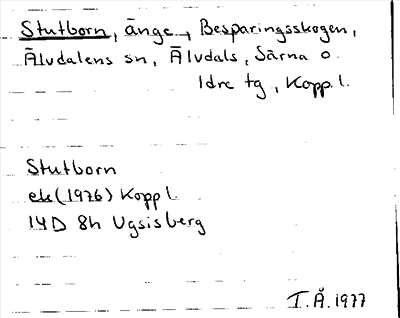 Stutborn, änge, Besparingsskogen,
Älvdalens sn, Älvdals, Särna o.
Idre tg, Kopp. l.
Stutborn
ek (1976) Kopp l.
14D 8h Ugsisberg
I.Å. 1977